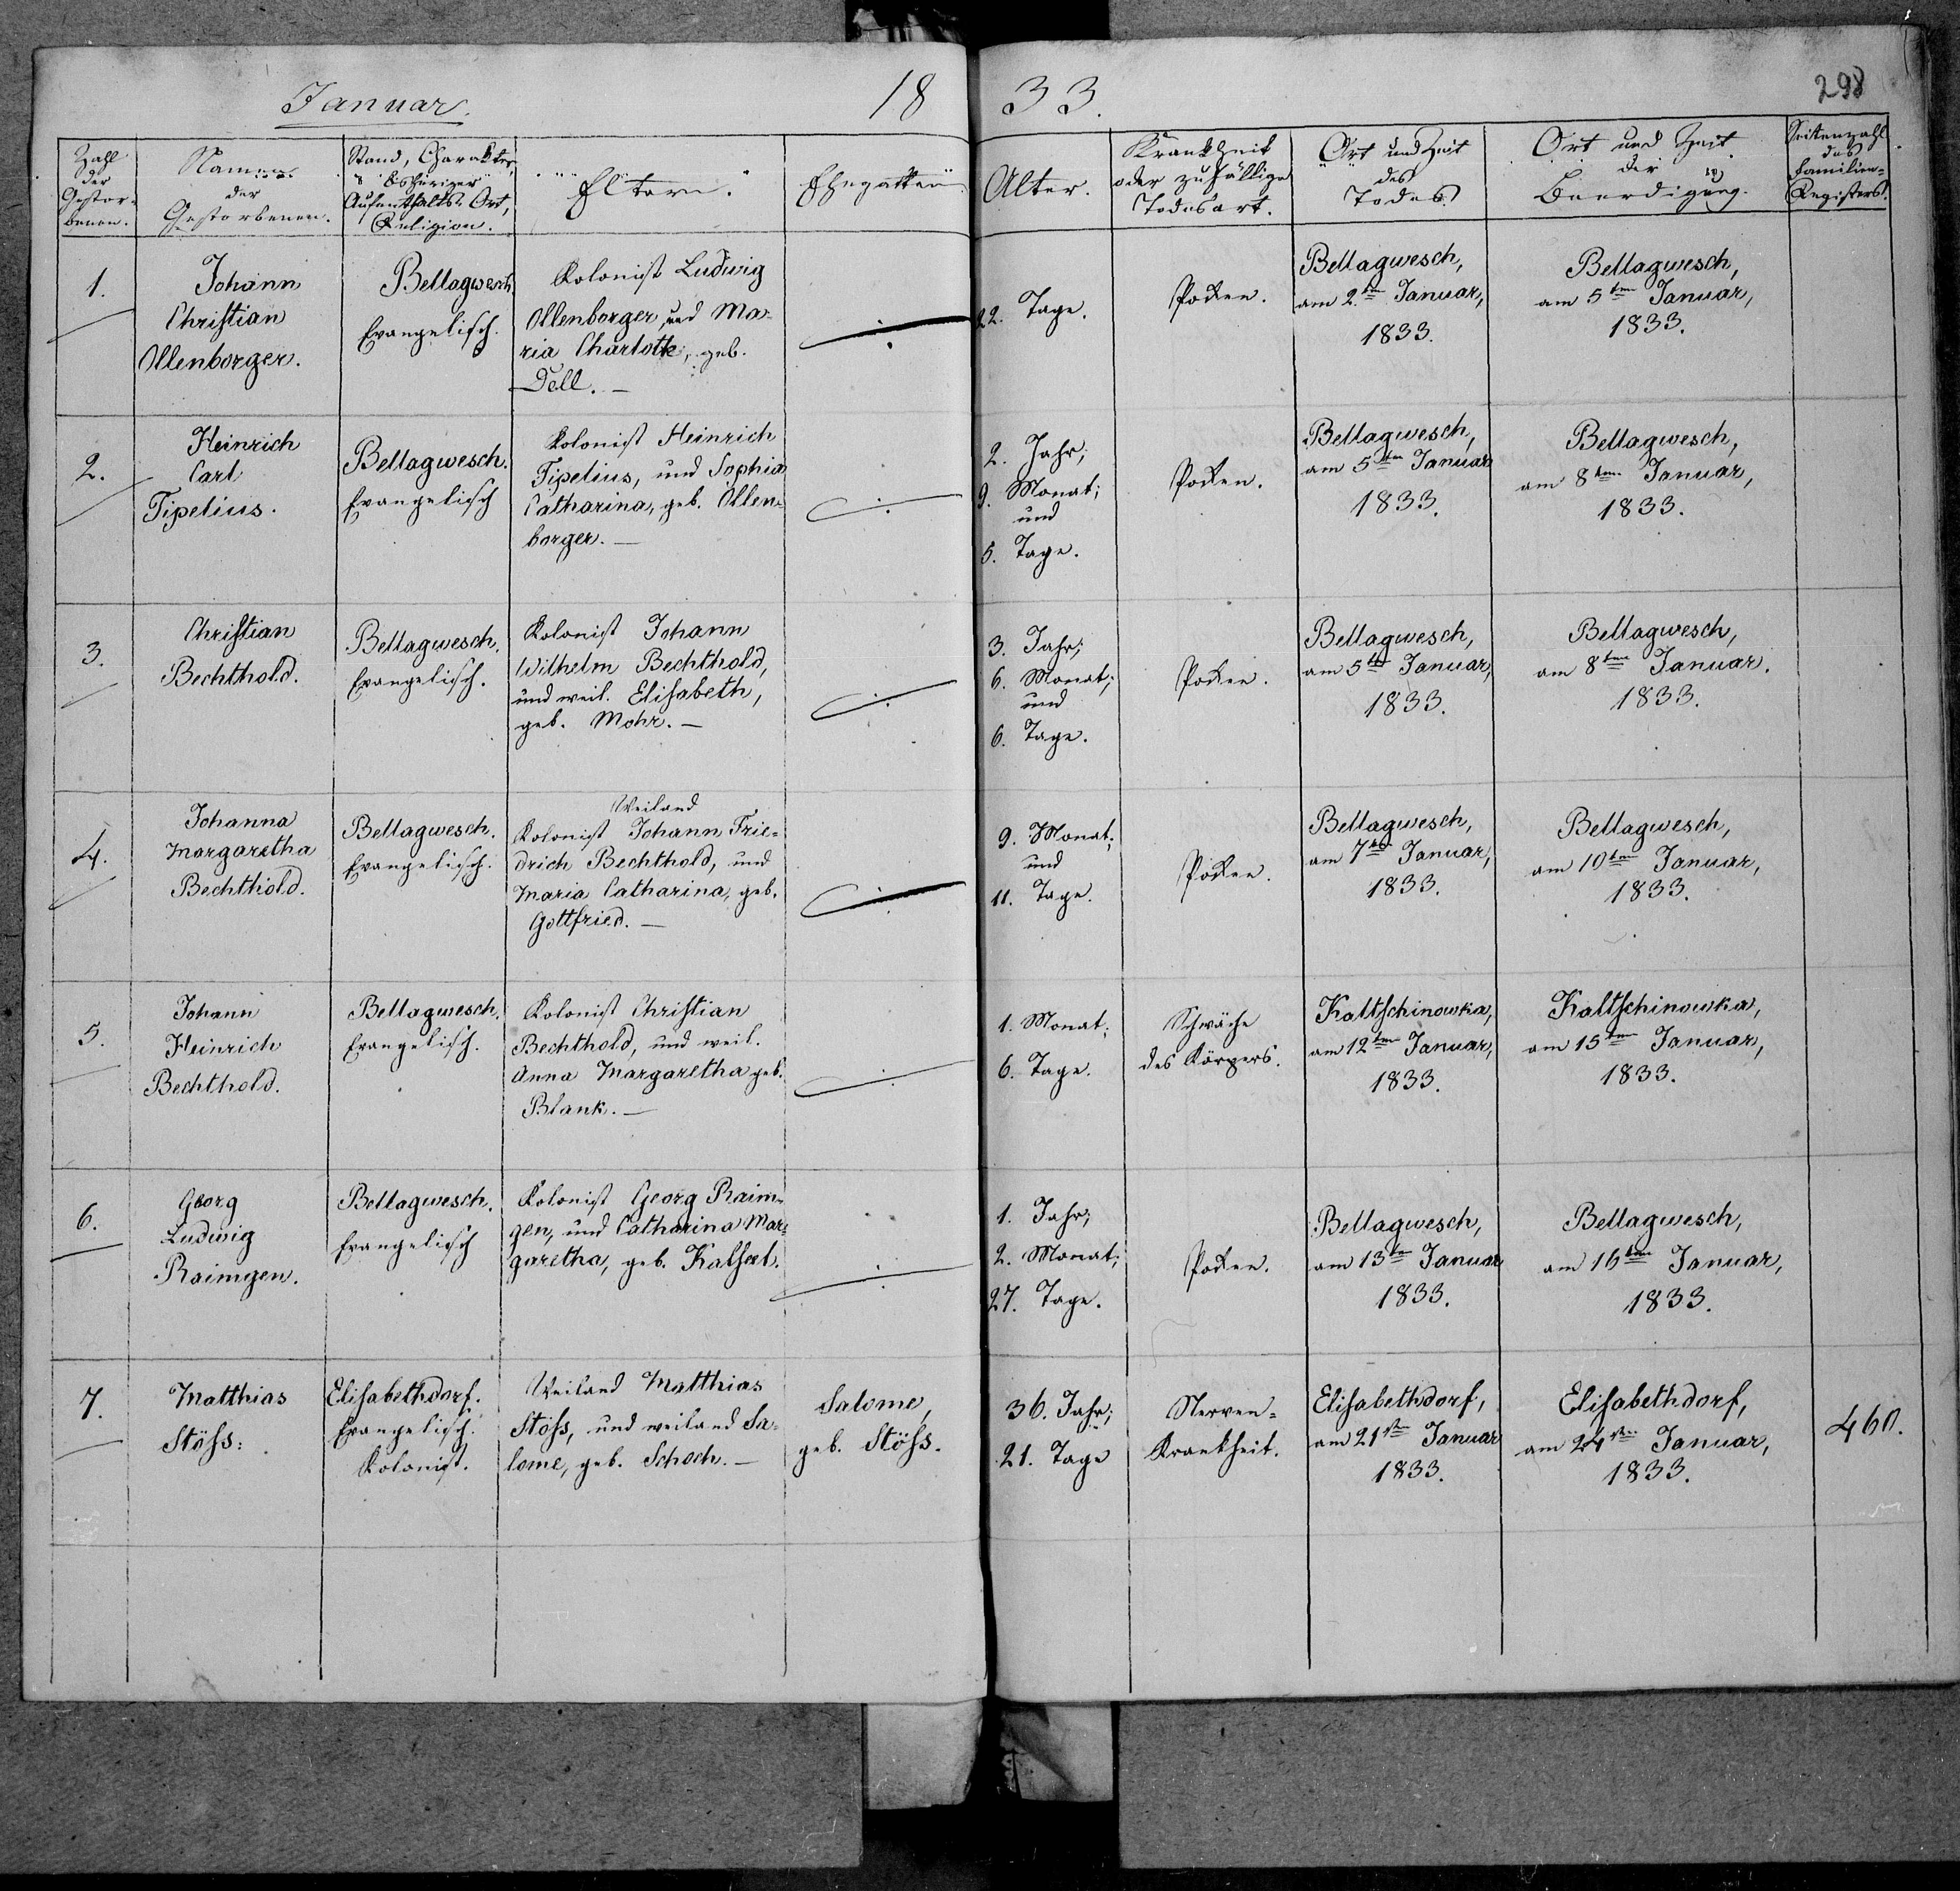 Januar.
18
33.
298
Zahl
der
Gestor-
benen.
Namen
der
Gestorbenen.
Stand, Charakter,
bisheriger
Aufenthalts-Ort,
Religion.
Eltern.
Ehegatten.
Alter.
Krankheit
oder zufällige
Todesart.
Ort und Zeit
des
Todes.
Ort und Zeit
der
Beerdigung.
Seitenzahl
des
Familien-
Registers.
1.
Johann
Christian
Ollenborger.
Bellagwesch.
Evangelisch.
Kolonist Ludwig
Ollenborger, und Ma-
ria Charlotte, geb.
Dell. —
22. Tage.
Pocken.
Bellagwesch,
am 2ten Januar,
1833.
Bellagwesch,
am 5ten Januar,
1833.
2.
Heinrich
Carl
Tipelius.
Bellagwesch.
Evangelisch
Kolonist Heinrich
Tipelius, und Sophia
Catharina, geb. Ollen-
borger. —
2. Jahr;
9. Monat;
und
5. Tage.
Pocken.
Bellagwesch,
am 5ten Januar
1833.
Bellagwesch,
am 8ten Januar,
1833.
3.
Christian
Bechthold.
Bellagwesch.
Evangelisch.
Kolonist Johann
Wilhelm Bechthold,
und weil. Elisabeth,
geb. Mohr. —
3. Jahr;
6. Monat;
und
6. Tage.
Pocken.
Bellagwesch,
am 5ten Januar,
1833.
Bellagwesch,
am 8ten Januar.
1833.
4.
Johanna
Margaretha
Bechthold.
Bellagwesch.
Evangelisch.
Weiland
Kolonist Johann Frie-
drich Bechthold, und
Maria Catharina, geb.
Gottfried. —
9. Monat;
und
11. Tage.
Pocken.
Bellagwesch,
am 7ten Januar,
1833.
Bellagwesch,
am 10ten Januar,
1833.
5.
Johann
Heinrich
Bechthold.
Bellagwesch.
Evangelisch.
Kolonist Christian
Bechthold, und weil.
Anna Margaretha geb.
Blank. —
1. Monat;
6. Tage.
Schwäche
des Körpers.
Kaltschinowka,
am 12ten Januar,
1833.
Kaltschinowka,
am 15ten Januar,
1833.
6.
Georg
Ludwig
Raimgen.
Bellagwesch.
Evangelisch
Kolonist Georg Raim-
gen, und Catharina Mar-
garetha, geb.
1. Jahr;
2. Monat;
27. Tage.
Pocken.
Bellagwesch,
am 13ten Januar
1833.
Bellagwesch,
am 16ten Januar,
1833.
7.
Matthias
Stöss.
Elisabethdorf.
Evangelisch.
Kolonist.
Weiland Matthias
Stöss, und weiland Sa-
lome, geb. Schoch. —
Salome,
geb. Stöss.
36. Jahr;
21. Tage
Nerven-
Krankheit.
Elisabethdorf,
am 21sten Januar
1833.
Elisabethdorf,
am 24sten Januar,
1833.
460.